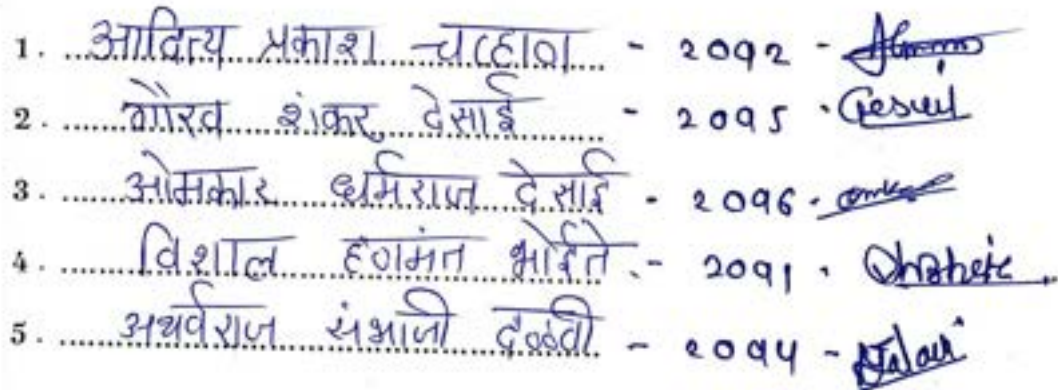 1. आदित्य प्रकाश चव्हाण - 2092 -
2. गौरव शंकर देसाई - 2095 -
3. ओमकार धर्मराज देसाई - 2096 -
4. विशाल हणमंत भोईते - 2091 -
5. अथर्वराज संभाजी दळवी - 2094 -